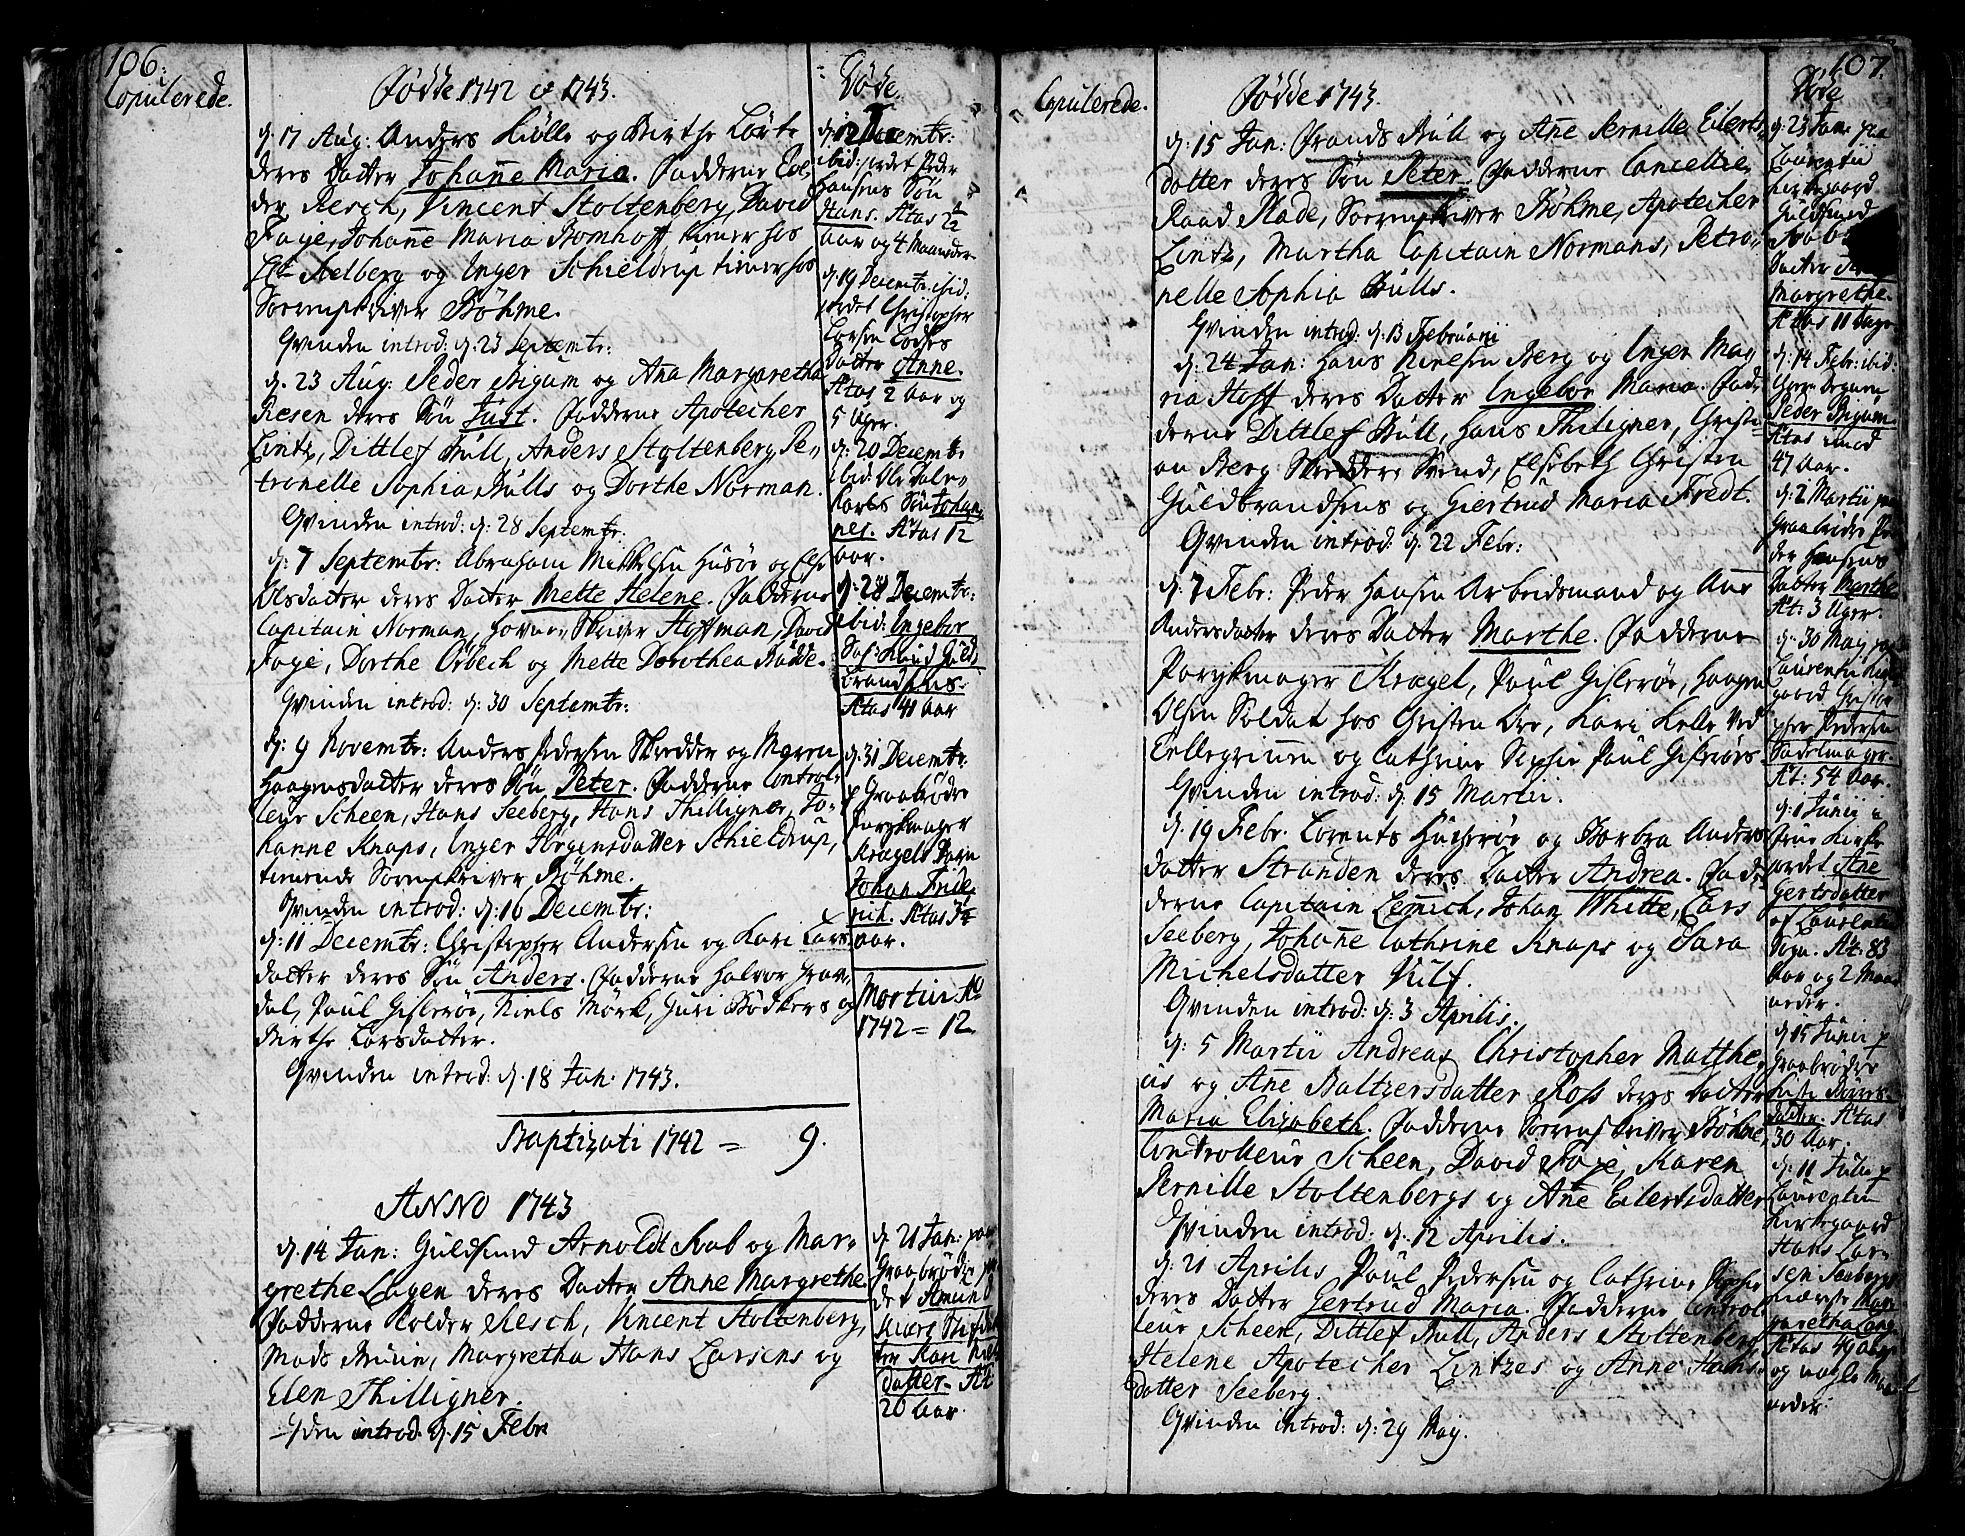 106.
Copulerede.
Fødde 1742 et 1743.
d: 17 Aug: Anders Kiølle og Birthe
deres Dotter Johanne Maria. Fadderne
Resch, Vincent Stoltenberg, David
Faye, Johanne Maria Bomhoff tiener hos
og Inger Schieldrup tiener hos
Sorenskriver Bøhme.
Qvinden introd: d: 23 Septembr:
d. 23 Aug: Peder Bigum og Ana Margaretha
Resen deres Søn Just. Fadderne Apotecher
Lintz, Dittlef Bull, Anders Stoltenberg, Pe-
tronelle Sophia Bulls og Dorthe Norman.
Qvinden introd: d: 28 Septembr:
d: 7 Septembr: Abraham Mikkelsen Husøe og
Olsdatter deres Dotter Mette Helene. Fadderne
Capitain Norman, Skriver Hoffman, David
Faye, Dorthe Orbech og Mette Dorothea
Qvinden introd: d: 30 Septembr:
d: 9 Novembr: Anders Pedersen Skredder og Maren
Haagensdatter deres Søn Peter. Fadderne Control-
leur Scheen, Hans Seeberg, Hans Thilligner, Jo-
hanne Knaps, Inger Jørgensdatter Schieldrup,
tienende Sorenskriver Bøhme.
Qvinden introd: d: 16 Decembr:
d: 11 Decembr: Christopher Andersen og Kari Lars
datter deres Søn Anders. Fadderne Halvor
dal, Paul Gislerøe, Niels Mørk, Guri Bødkers og
Birthe Larsdatter.
Qvinden introd: d. 18 Jan: 1743.
Baptizati 1742 = 9.
ANNO 1743
d: 14 Jan: Guldsmed Arnoldt Rab og Mar-
grethe Lagen deres Dotter Anne Margrethe
Fadderne Resch, Vincent Stoltenberg,
Mads Bruun, Margretha Hans Larsens og
Elen Thilligner.
introd. d. 15 Febr
Døde
Decembr:
ibid: Peder
Hansens Søn
Hans. Ætas 2 1/2
Aar og 4 Maaneder
d: 19 Decembr. ibid:
Christopher
Larsen
Dotter Anne.
Ætas 2 Aar og
5 Uger.
d: 20 Decembr
ibid: Ole
Søn Johan-
nes. Ætas 12
Aar.
d: 28 Decembr:
ibid: Ingebor
Guld-
brandsens.
Ætas 41 Aar
d: 31 Decembr:
p Graabrødre
Parykmager
Kragels Barn
Johan Fride-
rich. Ætas
Aar.
Mortui Ao
1742 = 12.
d. 21 Jan:
Graabrødre
Kari
datter. Æt:
20 Aar.
107.
Copulerede.
Fødde 1743.
d: 15 Jan: Frands Bull og Ane Pernille Eilerts
datter deres Søn Peter. Fadderne Cancellie
Raad Plade, Sorenskriver Bøhme, Apotecher
Lintz, Martha Capitain Normans, Petro-
nelle Sophia Bulls.
Qvinden introd: d: 13 Februarii
d: 24 Jan: Hans Nielsen Berg og Inger Ma-
ria Hoff deres Dotter Ingebor Maria. Fad-
derne Dittlef Bull, Hans Thiligner, Christi-
an Berg Svend, Elsebeth Christen
Guldbrandsens og Giertrud Maria Fredt.
Qvinden introd: d. 22 Febr:
d: 7 Febr: Peder Hansen Arbeidsmand og Ane
Andersdatter deres Dotter Marthe. Fadderne
Parykmager Kragel, Paul Gislerøe, Haagen
Olsen Soldat hos Christen Kari Helle ved
og Cathrine Sophie Paul Gislerøes
Qvinden introd: d: 15 Martii.
d. 19 Febr. Lorents og Barbra Anders
datter Stranden deres Dotter Andrea. Fad-
derne Capitain Lemich, Johan Whitte, Lars
Seeberg, Johanne Cathrine Knaps og Sara
Michelsdatter Vulf.
Qvinden introd: d: 3 Aprilis.
d: 5 Martii Andreas Christopher Matthe-
us og Ane Baltzersdatter Ross deres Dotter
Maria Elisabeth. Fadderne Sorenskriver Bøhme,
Controlleur Scheen, David Faye, Karen
Pernille Stoltenbergs og Ane Eilertsdatter
Qvinden introd: d. 12 Aprilis.
d: 21 Aprilis Paul Pedersen og Cathrine Sophie
deres Dotter Gertrud Maria. Fadderne Control
leur Scheen, Dittlef Bull, Anders Stoltenberg
Helene Apotecher Lintzes og Anne Hans-
datter Seeberg.
Qvinden introd: d: 29 Maj.
Døde
d: 23 Jan: paa
Laurentii
Kirkegaard
Guldsmed
Dotter
Margrethe.
Ætas 11 Dage
d: 14 Febr: ibid:
Peder Bigum.
Ætas imod
47 Aar.
d: 2 Martii
Graabrødre Pe-
der Hansens
Dotter Marthe
Æt: 3 Uger.
d: 30 Maj
Laurentii Kirke
gaard Christo
pher Pedersen
Sadelmager.
Æt: 54 Aar.
d: 1 Junii
Kirke
Ane
Gertsdatter
af Laurentii
Sogn. Æt: 83
Aar og 2 Maa-
neder.
d: 15 Junii p
Graabrødre
datter. Ætas
30 Aar.
d: 11 Julii p
Laurentii
Kirkegaard
Hans Lar-
sen Seebergs
Mar-
garetha
Ætas 49 Aar
og nogle Maa-
neder.